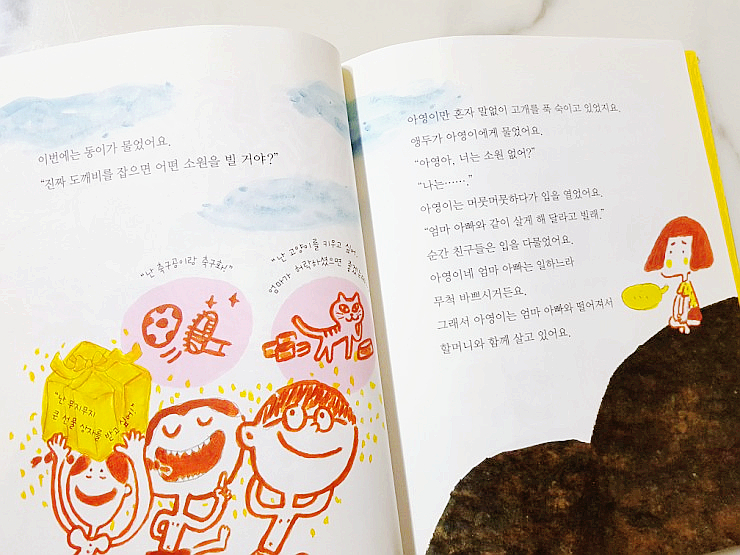 이번에는 동이가 물었어요.
"진짜 도깨비를 잡으면 어떤 소원을 빌 거야?"
"난 축구공이랑 축구화!"
"난 고양이를 키우고 싶어.
엄마가 허락하셨으면 좋겠
"난 무지무지
큰 선물 상자를 받고 싶어!"
아영이만 혼자 말없이 고개를 푹 숙이고 있었지요.
앵두가 아영이에게 물었어요.
"아영아, 너는 소원 없어?"
"나는……."
아영이는 머뭇머뭇하다가 입을 열었어요.
"엄마 아빠와 같이 살게 해 달라고 빌래."
순간 친구들은 입을 다물었어요.
아영이네 엄마 아빠는 일하느라
무척 바쁘시거든요.
그래서 아영이는 엄마 아빠와 떨어져서
할머니와 함께 살고 있어요.